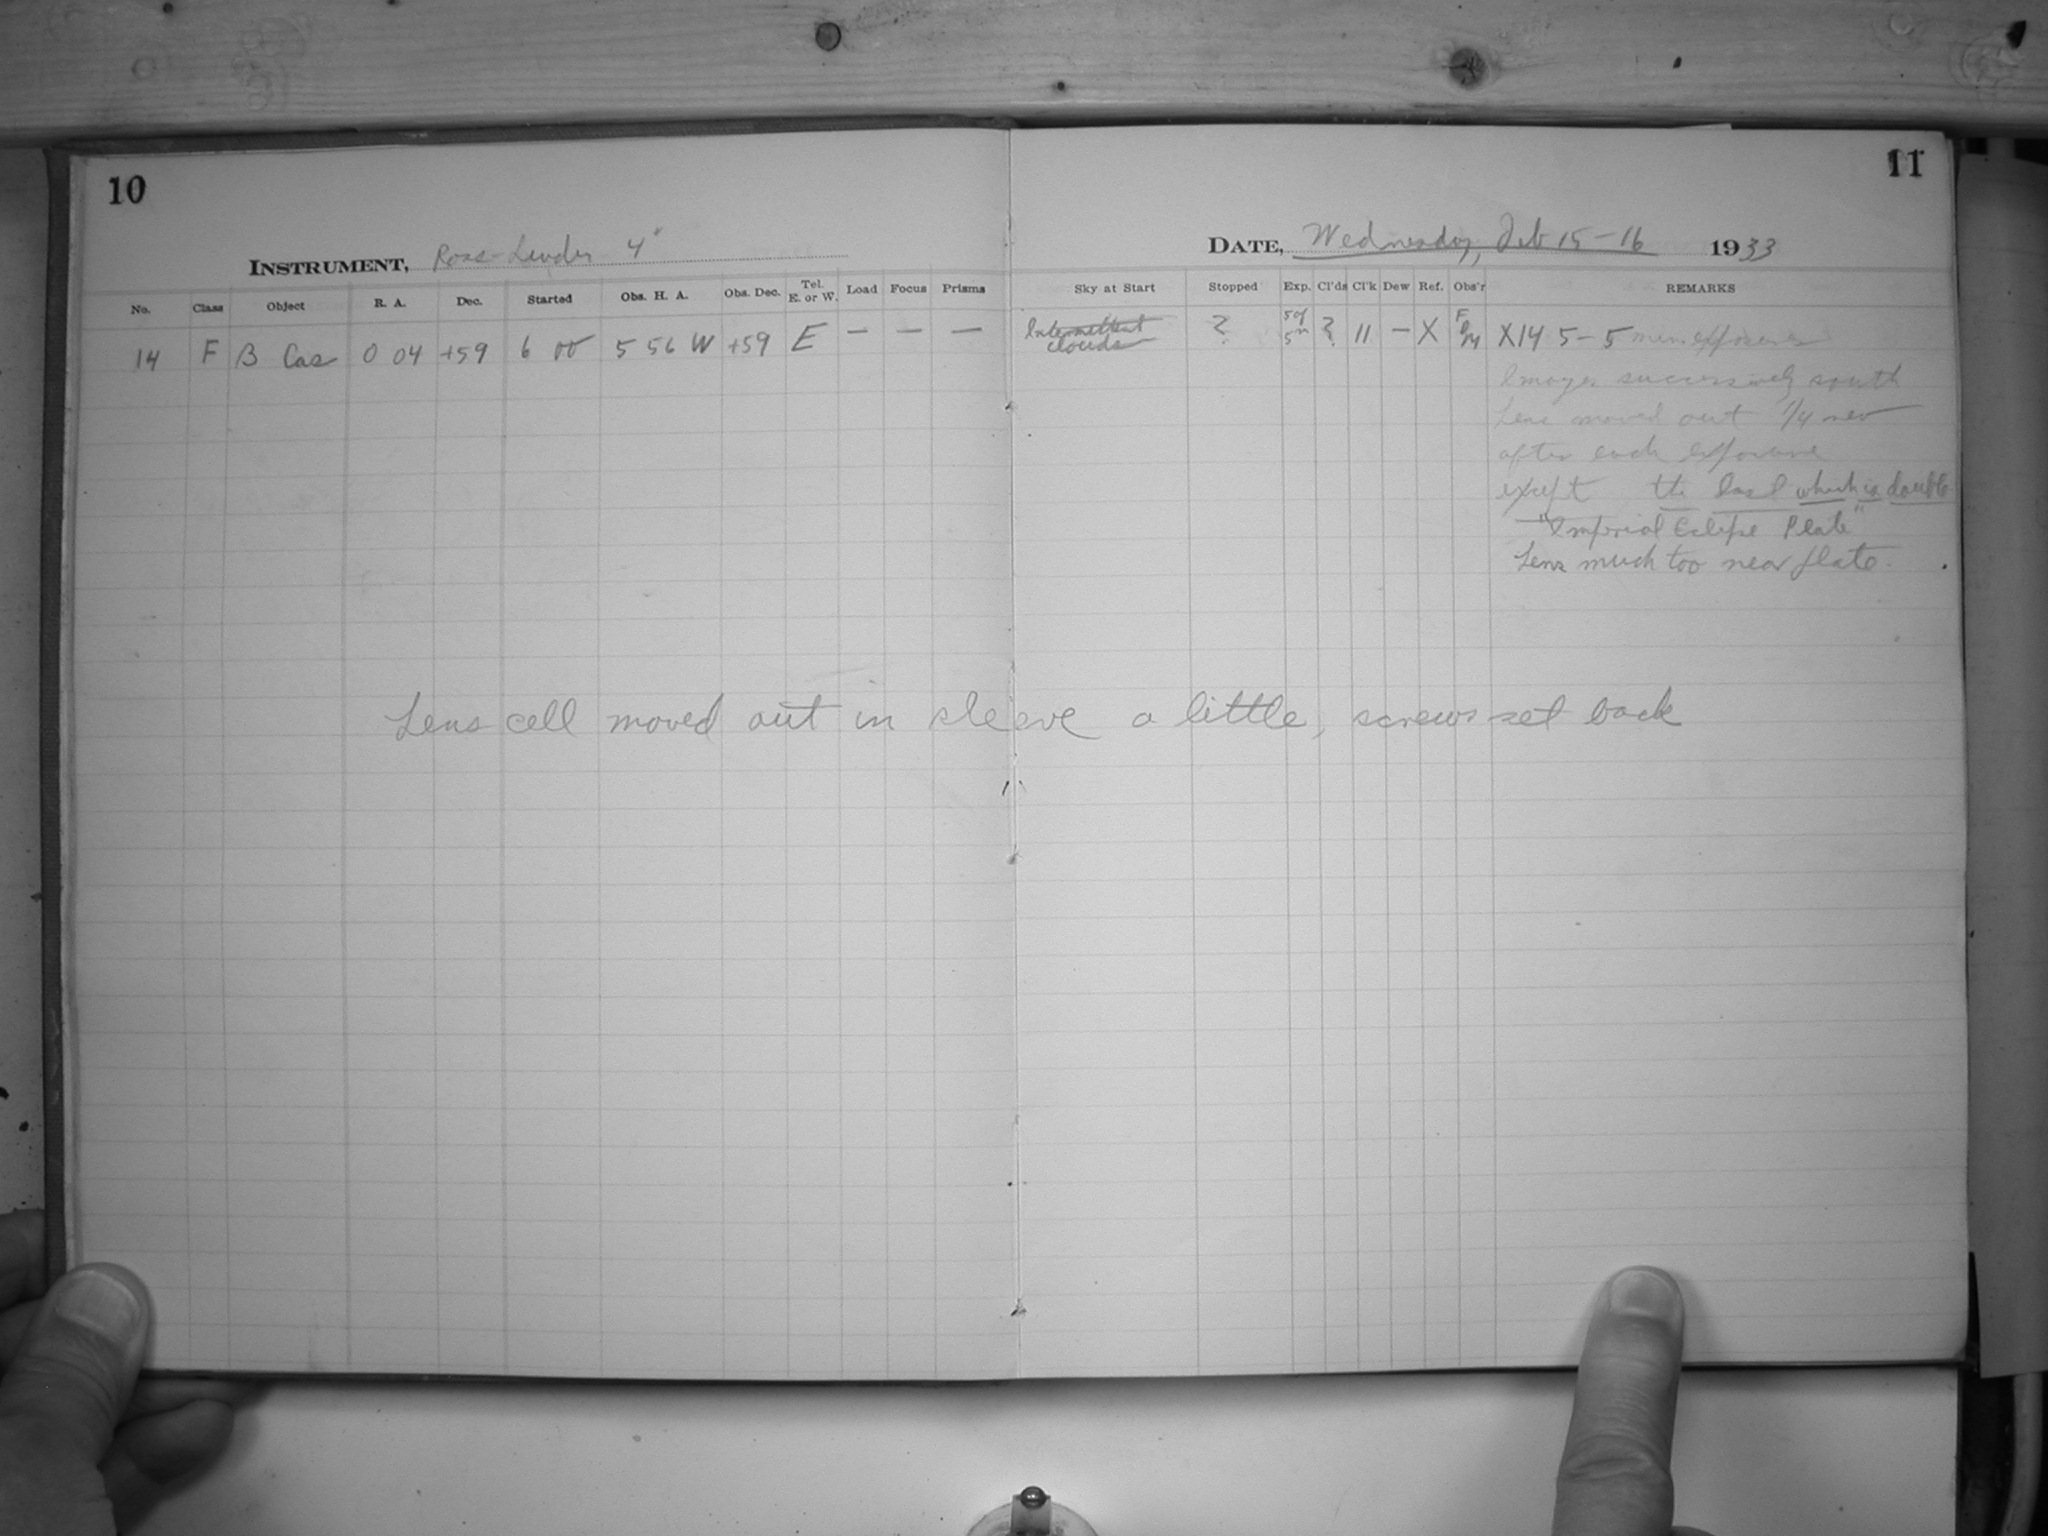 10
11
INSTRUMENT, Ross-Lundin 4"
DATE, Wednesday, Feb 15-16 1933
No. Class Object R. A. Dec. Started Obs. H. A. Obs. Dec. Tel. E. or W. Load Focus Prisms Sky at Start Stopped Exp. Cl'ds Cl'k Dew Ref. Obs'r REMARKS
14 F B Cas 0 04 +59 6 00 5 56 W +59 E — — — Intermittent clouds ? 5 of 5m ? 11 — X X14 5-5 min exposures
Images successively south
Lens moved out 1/4 rev
after each exposure
except the last which is double
"Imperial Eclipse Plate"
Lens much too near plate.
Lens cell moved out in sleeve a little, screws set back